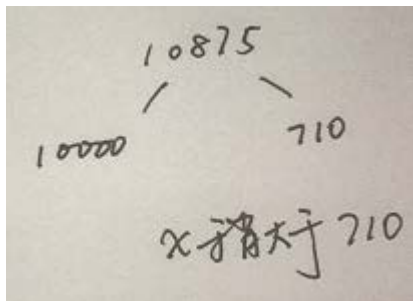 10875
10000 710
x 大于 710